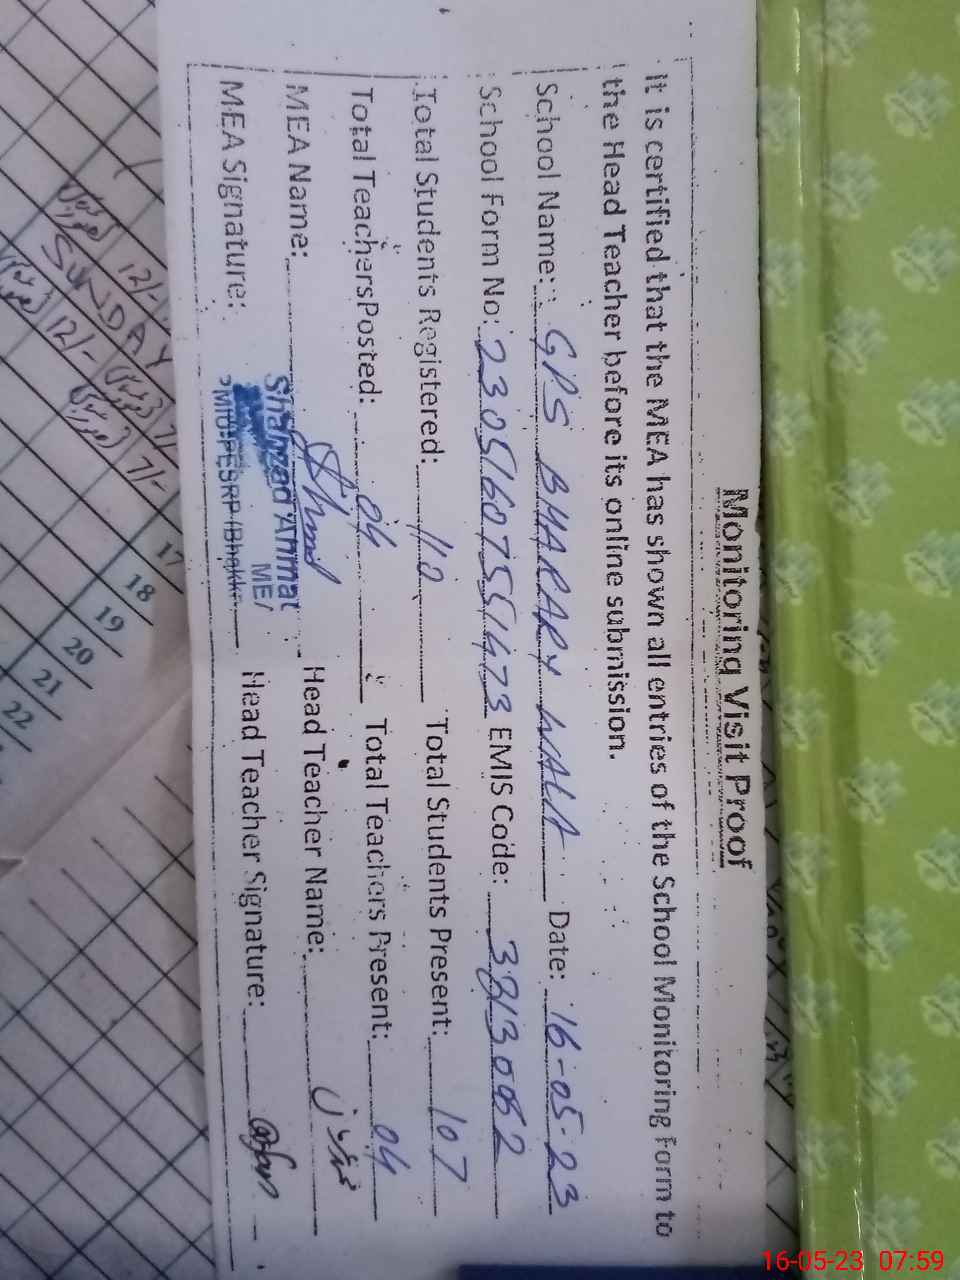 Monitoring Visit Proof
It is certified that the MEA has shown all entries of the School Monitoring Form to
the Head Teacher before its online submission.
School Name: GPS BHARARY WALA Date: 16-05-23
School Form No: 23051607551473 EMIS Code: 38130062
Total Students Registered: 110 Total Students Present: 107
Total Teachers Posted: 04 Total Teachers Present: 04
MEA Name: Head Teacher Name:
Shahzad Ahmad
MEA Signature: Head Teacher Signature:
SUNDAY
12/-
12/-
7/-
17
18
19
20
21
22
16-05-23 07:59